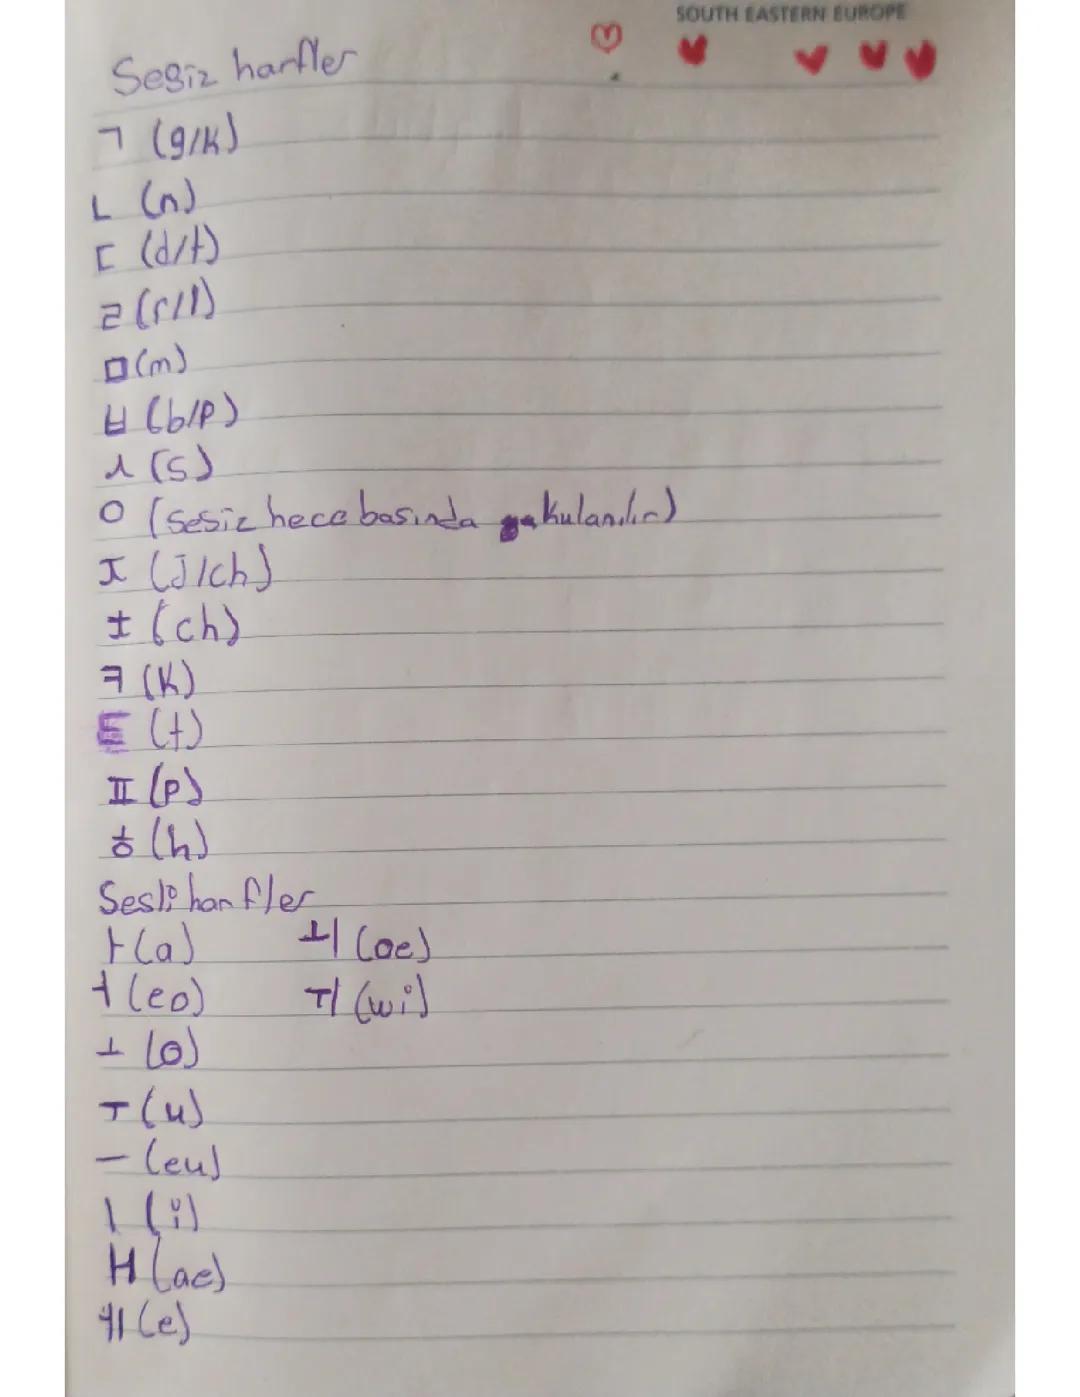 SOUTH EASTERN EUROPE
Sesiz harfler
ㄱ (g/k)
ㄴ (n)
ㄷ (d/t)
ㄹ (r/l)
ㅁ (m)
ㅂ (b/p)
ㅅ (s)
ㅇ (sesiz hece basında kulanılır)
ㅈ (j/ch)
ㅊ (ch)
ㅋ (k)
ㅌ (t)
ㅍ (p)
ㅎ (h)
Sesli harfler
ㅏ (a) ㅚ (oe)
ㅓ (eo) ㅟ (wi)
ㅗ (o)
ㅜ (u)
ㅡ (eu)
ㅣ (i)
ㅐ (ae)
ㅔ (e)